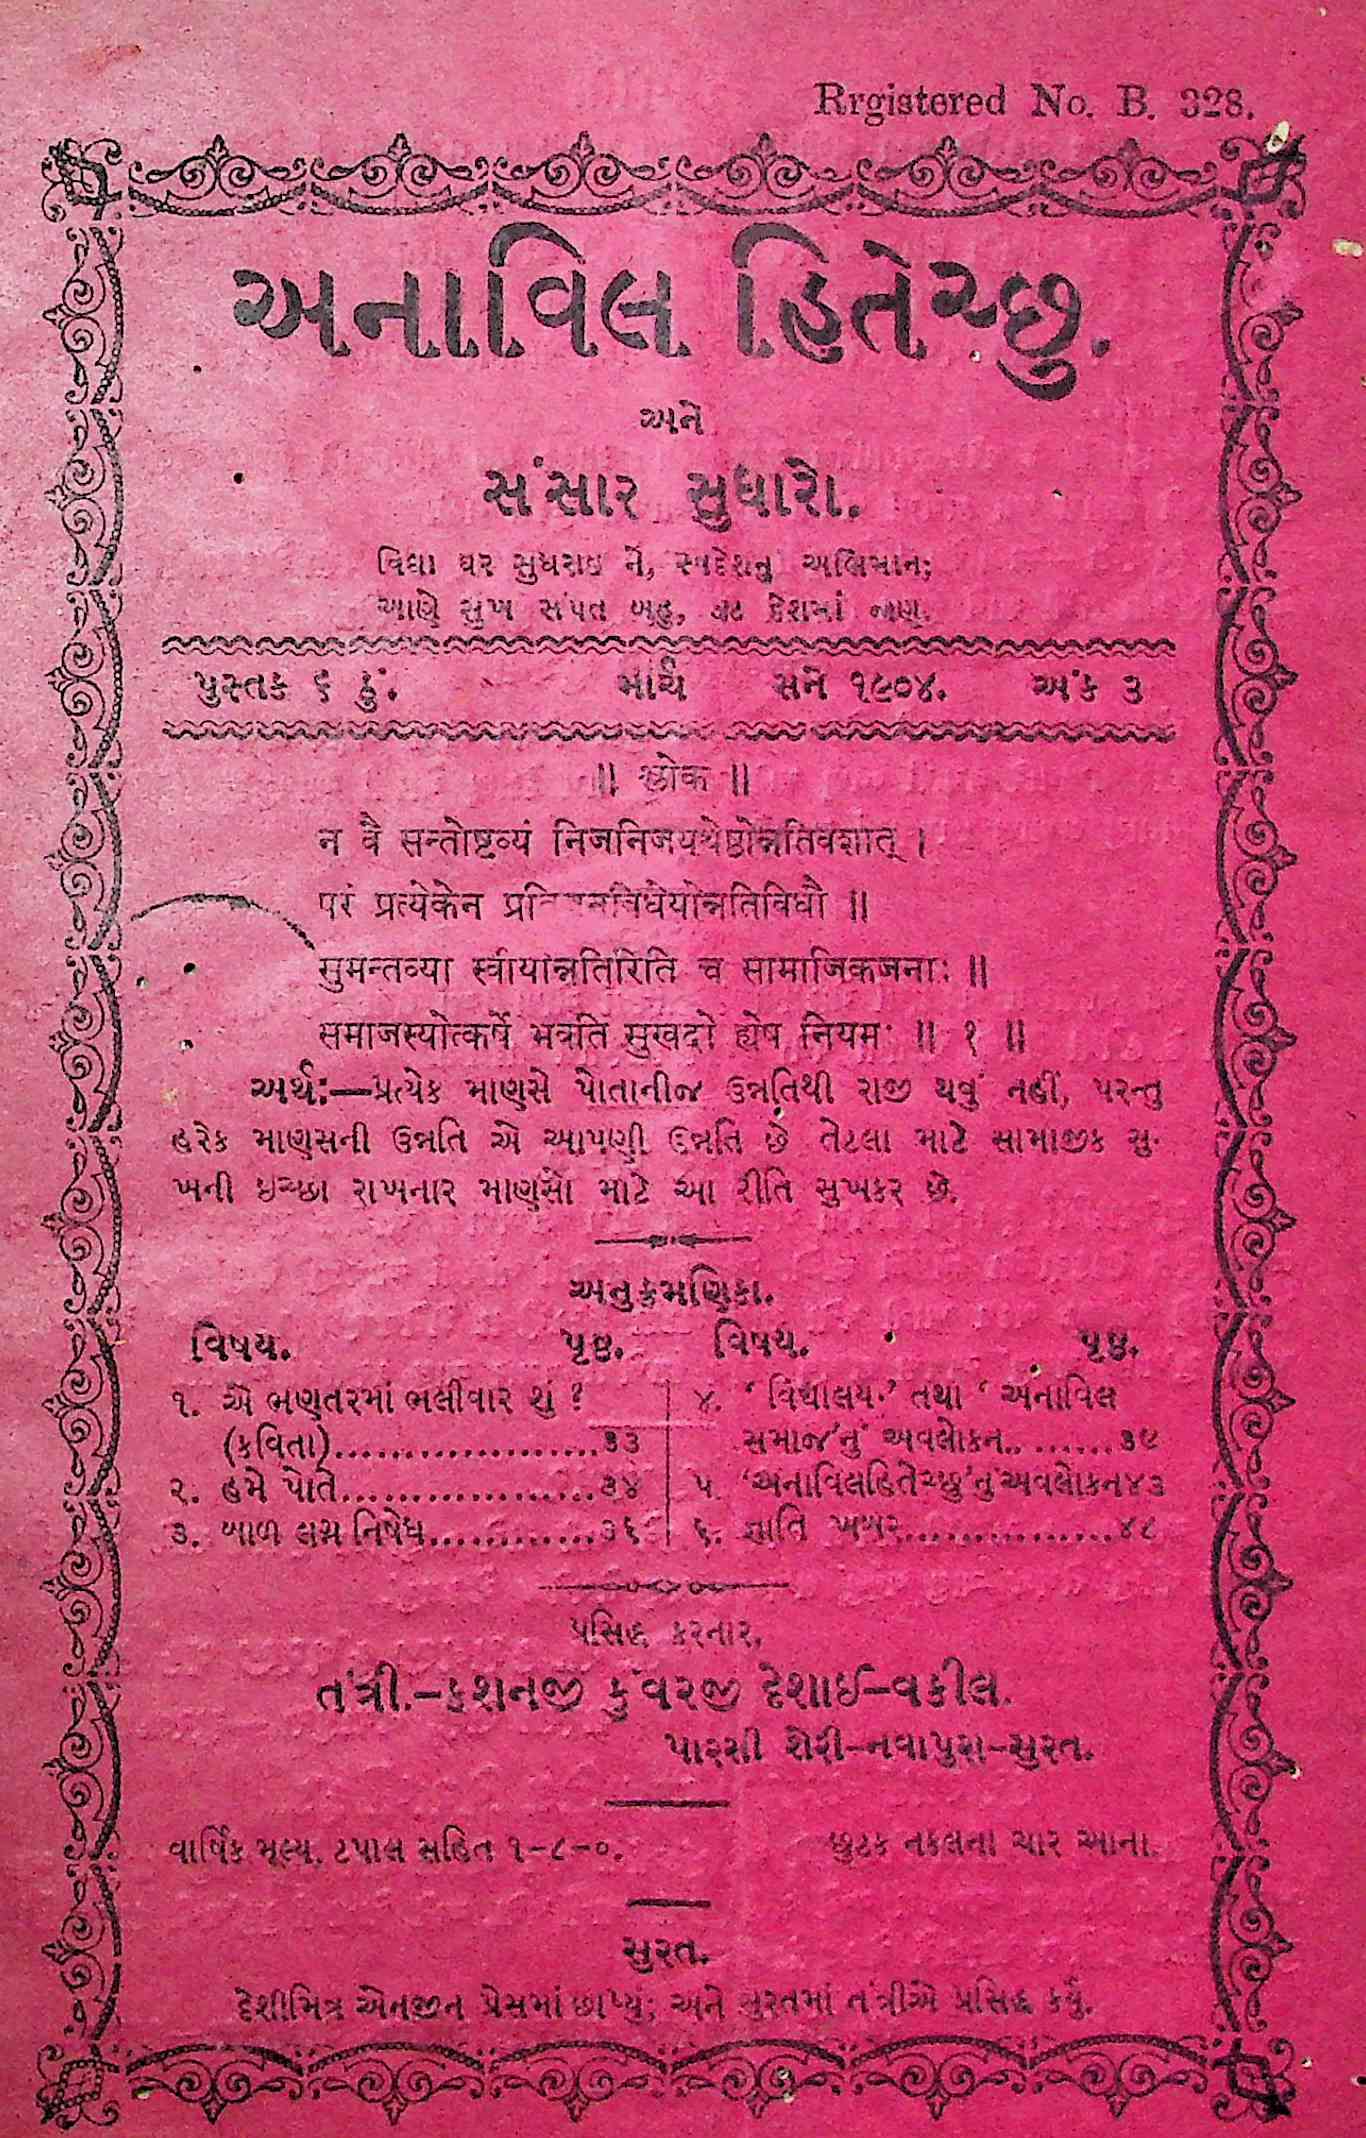 Rrgistered No. B. 328.
અનાવિલ હિતેચ્છુ.
અને
સંસાર સુધારો.
વિદ્યા ઘર સુધરાઇ ને, સ્વદેશનુ અભિમાન;
આણે સુખ સંપત બહુ, ઝટ દેશમાં જાણ.
પુસ્તક ૬ ઠું. માર્ચ સને ૧૯૦૪. અંક ૩
॥ श्लोक ॥
न वै सन्तोष्टव्यं निजनिजयथेष्ठोन्नतिवशात् ।
परं प्रत्येकेन
सुमन्तव्या स्वीयोन्नतिरिति च सामाजिकजनाः ॥
समाजस्योत्कर्षे भवति सुखदो ह्येष नियमः ॥ १ ॥
અર્થ:—પ્રત્યેક માણસે પોતાનીજ ઉન્નતિથી રાજી થવું નહીં, પરન્તુ
હરેક માણસની ઉન્નતિ એ આપણી ઉન્નતિ છે તેટલા માટે સામાજીક સુ-
ખની ઇચ્છા રાખનાર માણસો માટે આ રીતિ સુખકર છે.
અનુક્રમણિકા.
વિષય. પૃષ્ઠ. વિષય. પૃષ્ઠ.
૧. એ ભણતરમાં ભલીવાર શું ?
(કવિતા)...................૩૩
૨. હમે પોતે..................૩૪
૩. બાળ લગ્ન નિષેધ............૩૬
૪. ‘ વિદ્યાલય ’ તથા ‘ અનાવિલ
સમાજ’નું અવલોકન.. .......૩૯
૫. ‘અનાવિલહિતેચ્છુ’નું અવલોકન૪૩
૬. જ્ઞાતિ ખબર...............૪૮
પ્રસિદ્ધ કરનાર,
તંત્રી.–કશનજી કુંવરજી દેશાઈ–વકીલ.
પારસી શેરી–નવાપુરા–સુરત.
વાર્ષિક મૂલ્ય. ટપાલ સહિત ૧–૮–૦. છુટક નકલના ચાર આના.
સુરત.
દેશીમિત્ર એનજીન પ્રેસમાં છાપ્યું; અને સુરતમાં તંત્રીએ પ્રસિદ્ધ કર્યું.